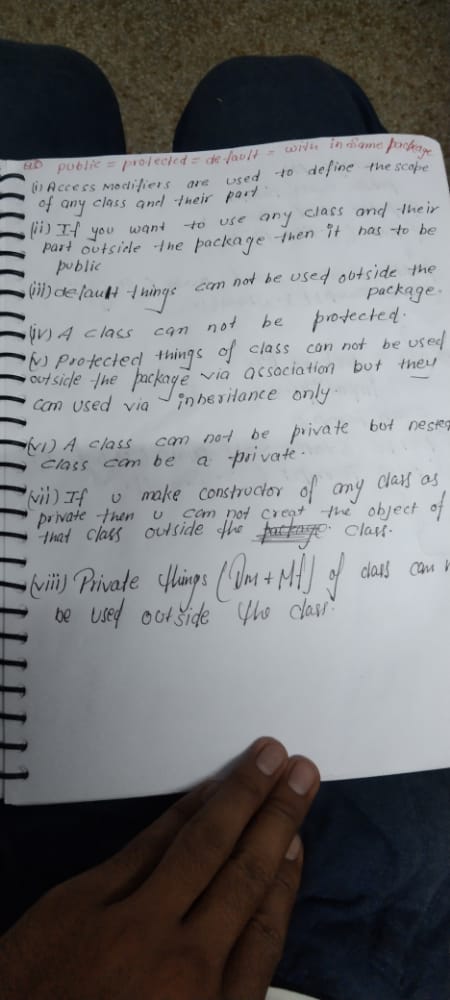 public = protected = default = with in same package
(i) Access Modifiers are used to define the scope
of any class and their part.
(ii) If you want to use any class and their
part outside the package then it has to be
public
(iii) default things can not be used outside the
package.
(iv) A class can not be protected.
(v) Protected things of class can not be used
outside the package via association but they
can used via inheritance only.
(vi) A class can not be private but nested
class can be a private.
(vii) If u make constructor of any class as
private then u can not creat the object of
that class outside the class.
(viii) Private things (Dm + Mf) of class can
be used outside the class.